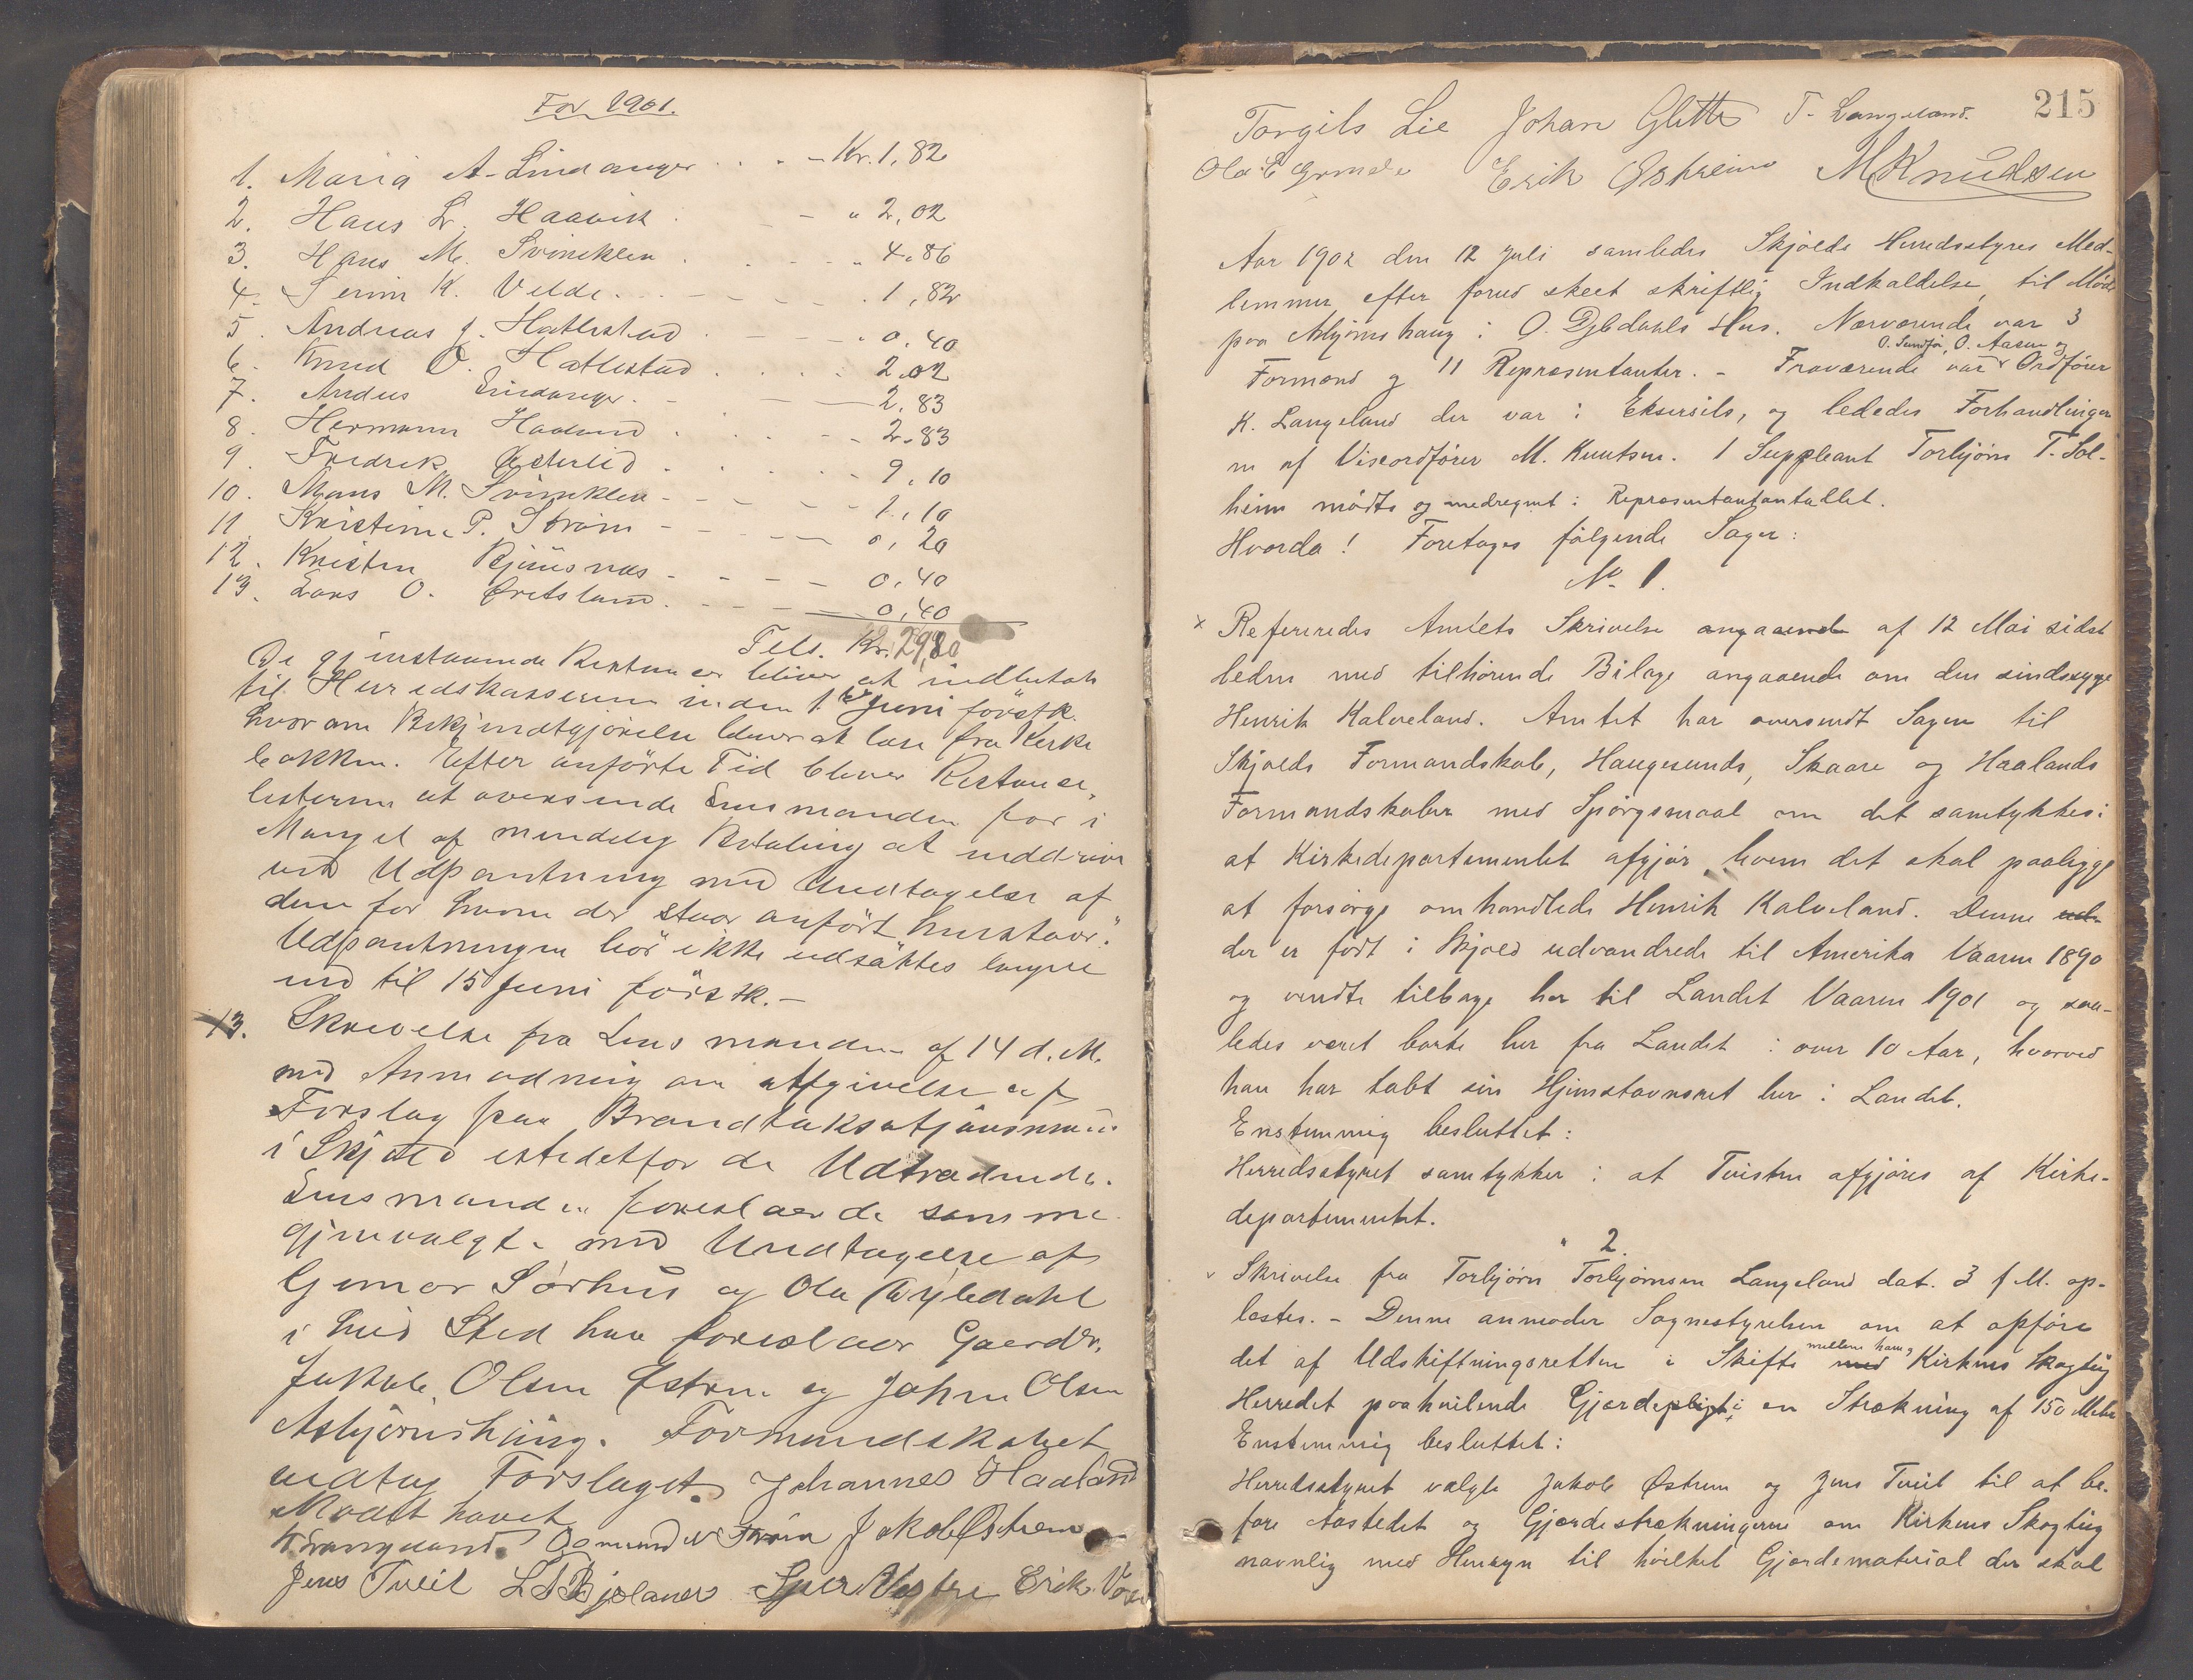 For 1901.
1. Maria A. Lindanger . . . - Kr. 1,82
2. Hans L. Haavik . - " 2,02
3. Hans M. Svineklen . . . . . " 4,86
4. Serine K. Velde. . . - - - . 1,82
5. Andreas J. Hatlestad . . - - . 0,40
6. Knud O. Hatlestad . . . . . 2,02
7. Andreas Lindanger. - - 2,83
8. Hermann Haaland . . . - - 2,83
9. Fredrik Østerlid . . . . . 9,10
10. Mons M. Svineklen - - - - - 1,10
11. Kristine P. Strøm - - - - 0,20
12. Kristen Bjuisnæs - - - - 0,40
13. Lars O. Øvitsland. - - - 0,40
Tils. Kr. 29,80
De gjenstaaende Restancer bliver at indbetale
til Herredskassereren inden 1ste Juni førstk.
hvorom Bekjendtgjørelse bliver at læse fra Kirke
bakken. Efter anførte Tid bliver Restance,
listerne at oversende Lensmanden for i
Mangel af mindelig Betaling at inddrive
ved Udpantning med Undtagelse af
dem for hvem der staar anført "henstaar".
Udpantningen bør ikke udsættes længere
end til 15 Juni førstk. -
13. Skrivelse fra Lensmanden af 14 d. M.
med Anmodning om afgivelse af
Forslag paa Brandtakstjænsmænd
i Skjold istedetfor de Udtrædende.
Lensmanden foreslaar de samme
gjenvalgt - med Undtagelse af
Gunnar Sørhus og Ola Dybdahl
i hvis Sted han foreslaar Gaardbr.
Jakob Olsen Østrem og Johan Olsen
Asbjørnshaug. Formandskabet
vedtog Forslaget. Johannes Haaland
Mødet hævet
K Langeland. Osmund N Jakob Østrem
Jens Tveit L T Bjelland Sjur Vestre Erik
215
Torgils Lie Johan Glette T. Langeland.
Ola E Grinde Erik Østreim M Knudsen
Aar 1902 den 12 Juli samledes Skjolds Herredsstyres Med-
lemmer efter forud skeet skriftlig Indkaldelse, til Møde
paa Asbjørnshaug i O. Dybdahls Hus. Nærværende var 3
Formænd og 11 Repræsentanter. - Fraværende var O. Sundfør, O. Aasen og Ordfører
K. Langeland der var i Eksersits, og lededes Forhandlingen
ne af Viseordfører M. Knutsen. 1 Suppleant Torbjørn T. Sol-
heim mødte og medregnet i Repræsentantantallet.
Hvorda! Foretoges følgende Sager:
No 1.
x Refereredes Amtets Skrivelse angaaende af 12 Mai sidst
leden med tilhørende Bilage angaaende om den sindssyge
Henrik Kalveland. Amtet har oversendt Sagen til
Skjolds Formandskab, Haugesunds, Skaare og Haalands
Formandskaber med Spørgsmaal om det samtykkes i
at Kirkedepartementet afgjør hvem det skal paaligge
at forsørge omhandlede Henrik Kalveland. Denne ud
der er født i Skjold udvandrede til Amerika Vaaren 1890
og vendte tilbage her til Landet Vaaren 1901 og saa-
ledes været borte her fra Landet i over 10 Aar, hvorved
han har tabt sin Hjemstavnsret her i Landet.
Enstemmig besluttet:
Herredsstyret samtykker i at Tvisten afgjøres af Kirke-
departementet.
" 2.
Skrivelse fra Torbjørn Torbjørnsen Langeland dat. 3 f. M. op-
læstes. - Denne anmoder Sognestyrelsen om at opføre
det af Udskiftningsretten i Skifte med mellem ham og Kirkens Skogteig
Herredet paahvilende Gjerdepligt i en Strækning af 150 Meter
Enstemmig besluttet:
Herredsstyret valgte Jakob Østrem og Jens Tveit til at be-
fare Aastedet og Gjerdestrækningerne om Kirkens Skogteig
navnlig med Hensyn til hvilket Gjerdemateriel der skal